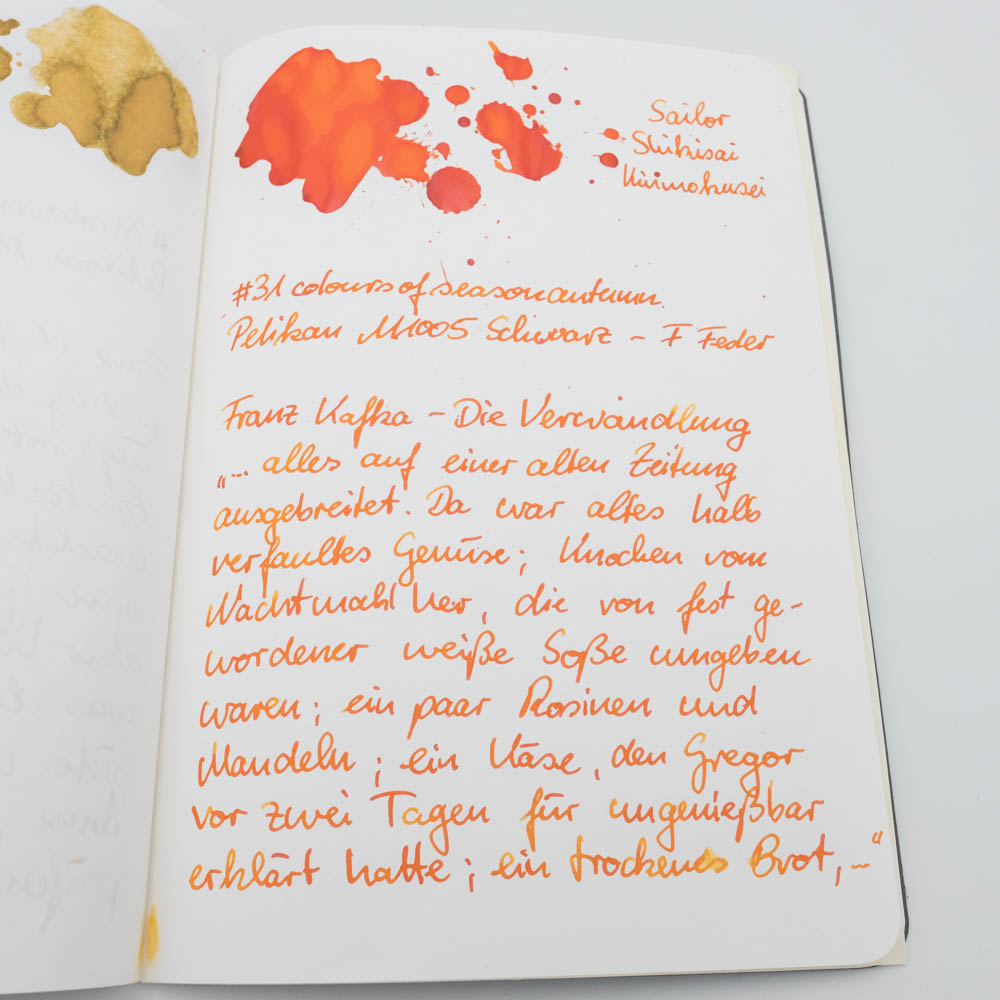 Sailor
Shikisai
Kinmokusei
#31 colours of season autumn
Pelikan M1005 Schwarz – F Feder
Franz Kafka – Die Verwandlung
„... alles auf einer alten Zeitung
ausgebreitet. Da war altes halb
verfaultes Gemüse; Knochen vom
Nachtmahl her, die von fest ge-
wordener weiße Soße umgeben
waren; ein paar Rosinen und
Mandeln; ein Käse, den Gregor
vor zwei Tagen für ungenießbar
erklärt hatte; ein trockenes Brot, ...“